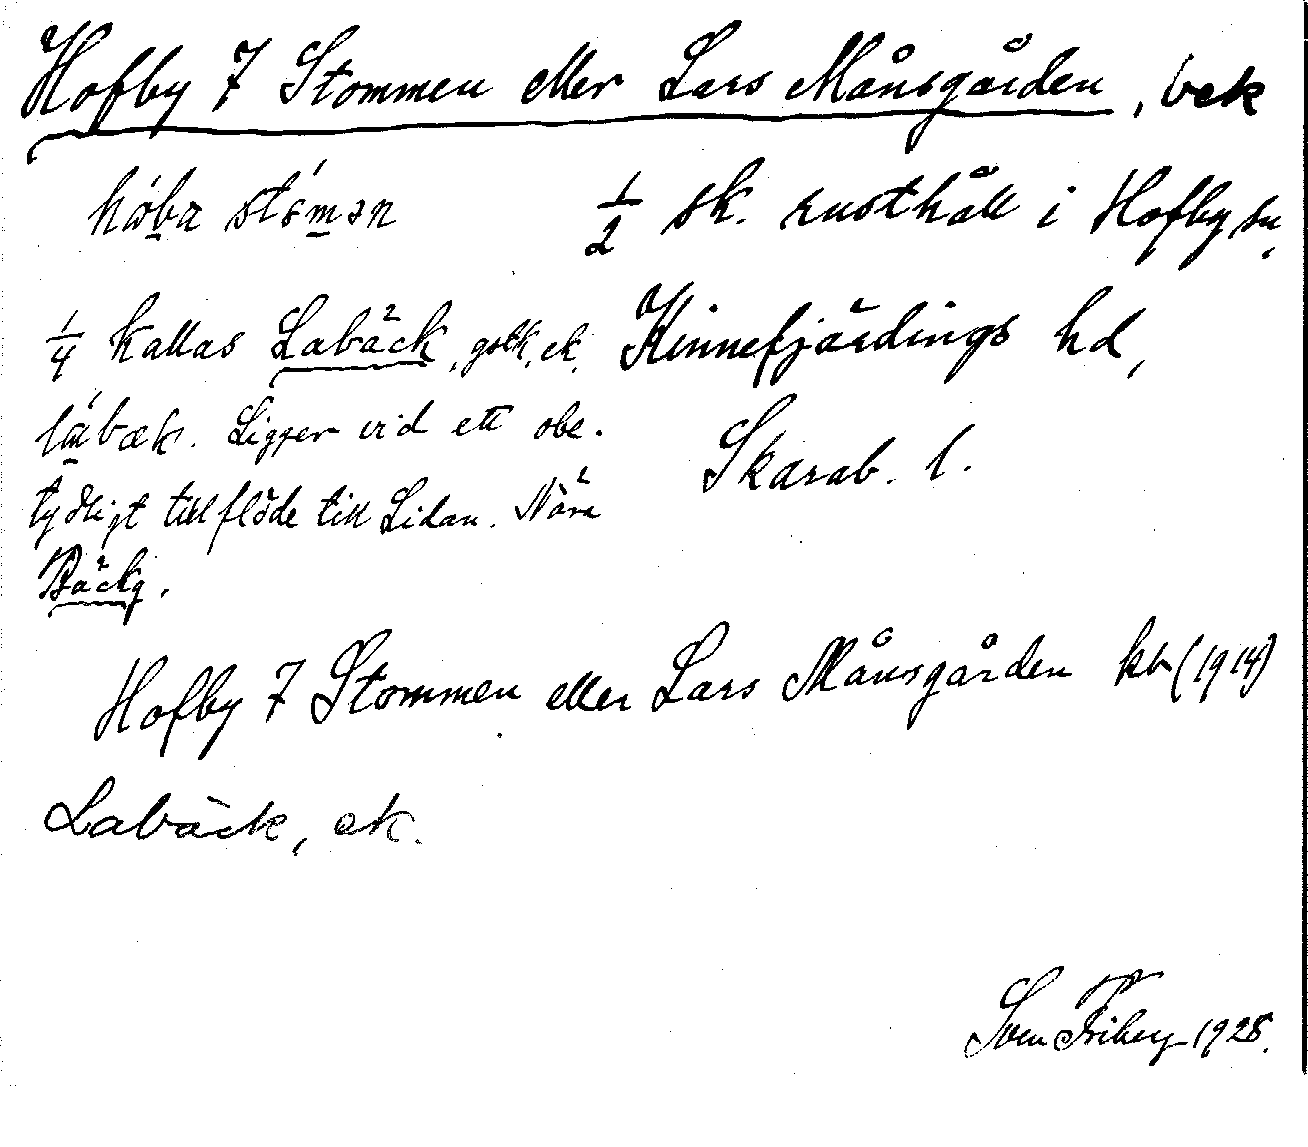 Hofby 7 Stommen eller Lars Månsgården, bek
håba stómǝn
1/2 sk. rusthåll i Hofby sn,
Kinnefjärdings hd,
Skarab. l.
1/4 kallas Labäck, gstk. ek.
lábæk. Ligger vid ett obe-
tydligt tillflöde till Lidan. Nära
Bäckg.
Hofby 7 Stommen eller Lars Månsgården kb (1914)
Labäck, ek.
Sven Friberg 1928.